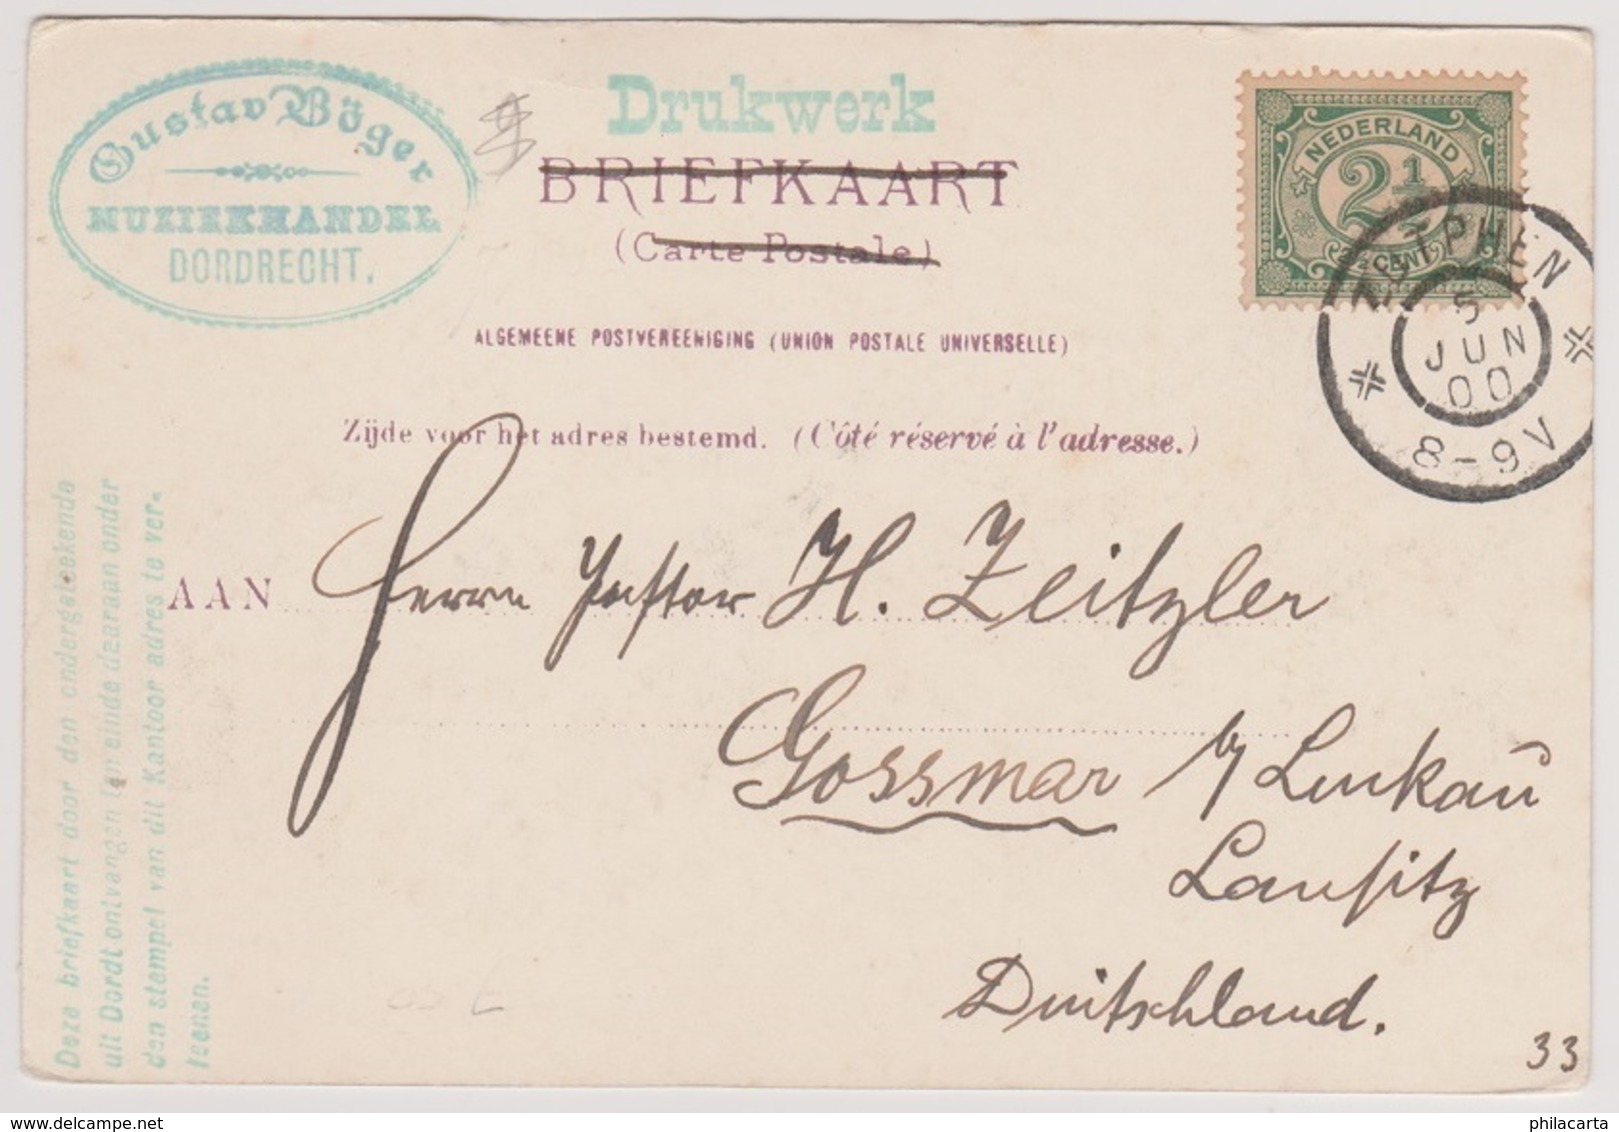 Gustav Böger
MUZIEKHANDEL
DORDRECHT.
Drukwerk
BRIEFKAART
(Carte Postale)
ALGEMEENE POSTVEREENIGING (UNION POSTALE UNIVERSELLE)
Zijde voor het adres bestemd. (Côté réservé à l'adresse.)
NEDERLAND
2½
CENT
ZUTPHEN
5
JUN
00
8-9V
AAN Herrn Pastor H. Zeitzler
Gossmar b/ Luckau
Lausitz
Duitschland.
33
Deze briefkaart door den ondergeteekende
uit Dordt ontvangen ten einde daaraan onder
den stempel van dit Kantoor adres te ver-
leenen.
philacarta